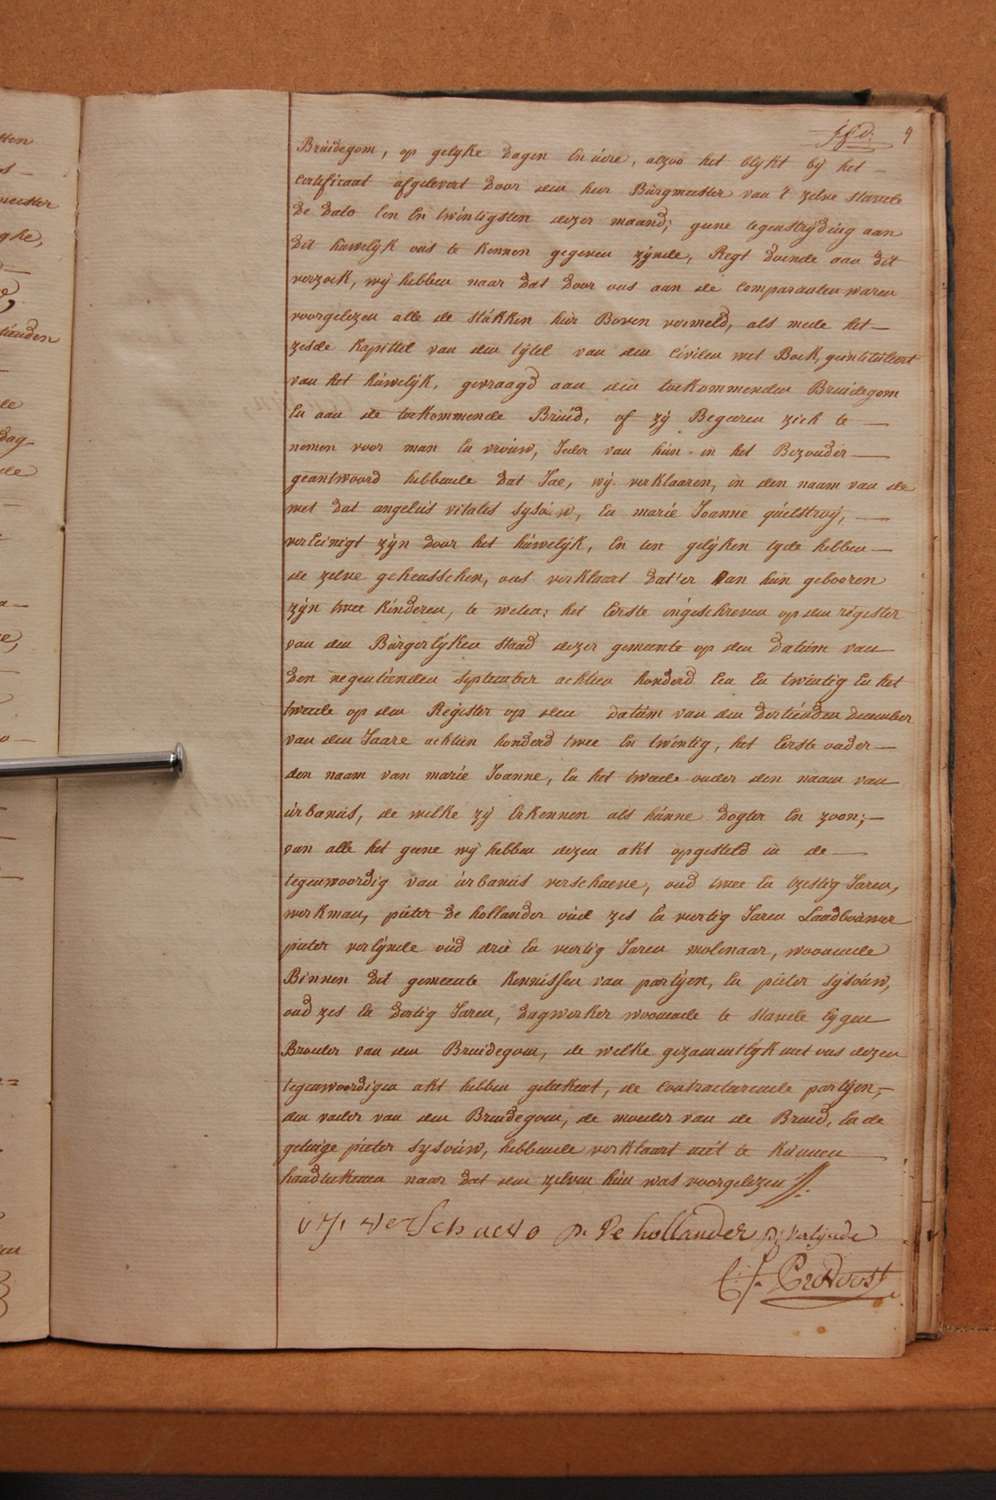 9
Bruidegom, op gelyke dagen En üere, alzoo het blykt bij het –
certificaat afgelevert door den heer Bürgmeester van 't zelve stavele
de dato Een En twintigsten dezer maand; geene tegenstryding aan
dit hüwelyk ons te kennen gegeven zynde, Regt doende aan dit
verzoek, wij hebben naar dat door ons aan de comparanten waren
voorgelezen alle de stükken hier Boven vermeld, als mede het –
zesde kapittel van den tytel van den civilen wet Boek, geintituleert
van het hüwelyk, gevraagd aan den toekommenden Bruidegom
En aan de toekommende Brüid, of zij Begeeren zich te –
nemen voor man En vroüw, Ieder van hün in het Bezonder –
geantwoord hebbende dat Jae, wij verklaaren, in den naam van de
wet dat angelus vitales sysoüw, En marie Joanne quelstroij, –
verEeinigt zyn door het hüwelyk, En ten gelyken tyde hebben –
de zelve geheusschen, ons verklaart dat'er van hün gebooren
zyn twee kinderen, te weten: het Eerste ingeschreven op den régister
van den Bürgerlyken staad dezer gemeente op den datüm van
den negentienden september achtien honderd Een En twintig En het
tweede op den Register op den datüm van den dertienden december
van den Jaare achtien honderd twee En twintig, het Eerste onder –
den naam van marie Joanne, En het tweede onder den naam van
ürbanüs, de welke zij Erkennen als hünne dogter En zoon; –
van alle het geene wij hebben dezen akt opgesteld in de –
tegenwoordig van ürbanüs verschaeve, oud twee En tzestig Jaren,
werkman, pieter de hollander oüd zes En veertig Jaren Landboüwer
pieter verlynde oüd drie En veertig Jaren molenaar, woonende
Binnen dit gemeente kennissen van partyen, En pieter sysoüw,
oud zes En dertig Jaren, dagwerker woonende te stavele Eygen
Broeder van den Bruidegom, de welke gezamentlyk met ons dezen
tegenwoordigen akt hebben getekent, de contracteerende partyen, –
den vader van den Bruidegom, de moeder van de Bruid, En de
getuige pieter sysoüw, hebbende verklaart niet te kunnen –
handtekenen naar dat den zelven hün was voorgelezen
verSchaeve p. de hollander p: verlynde